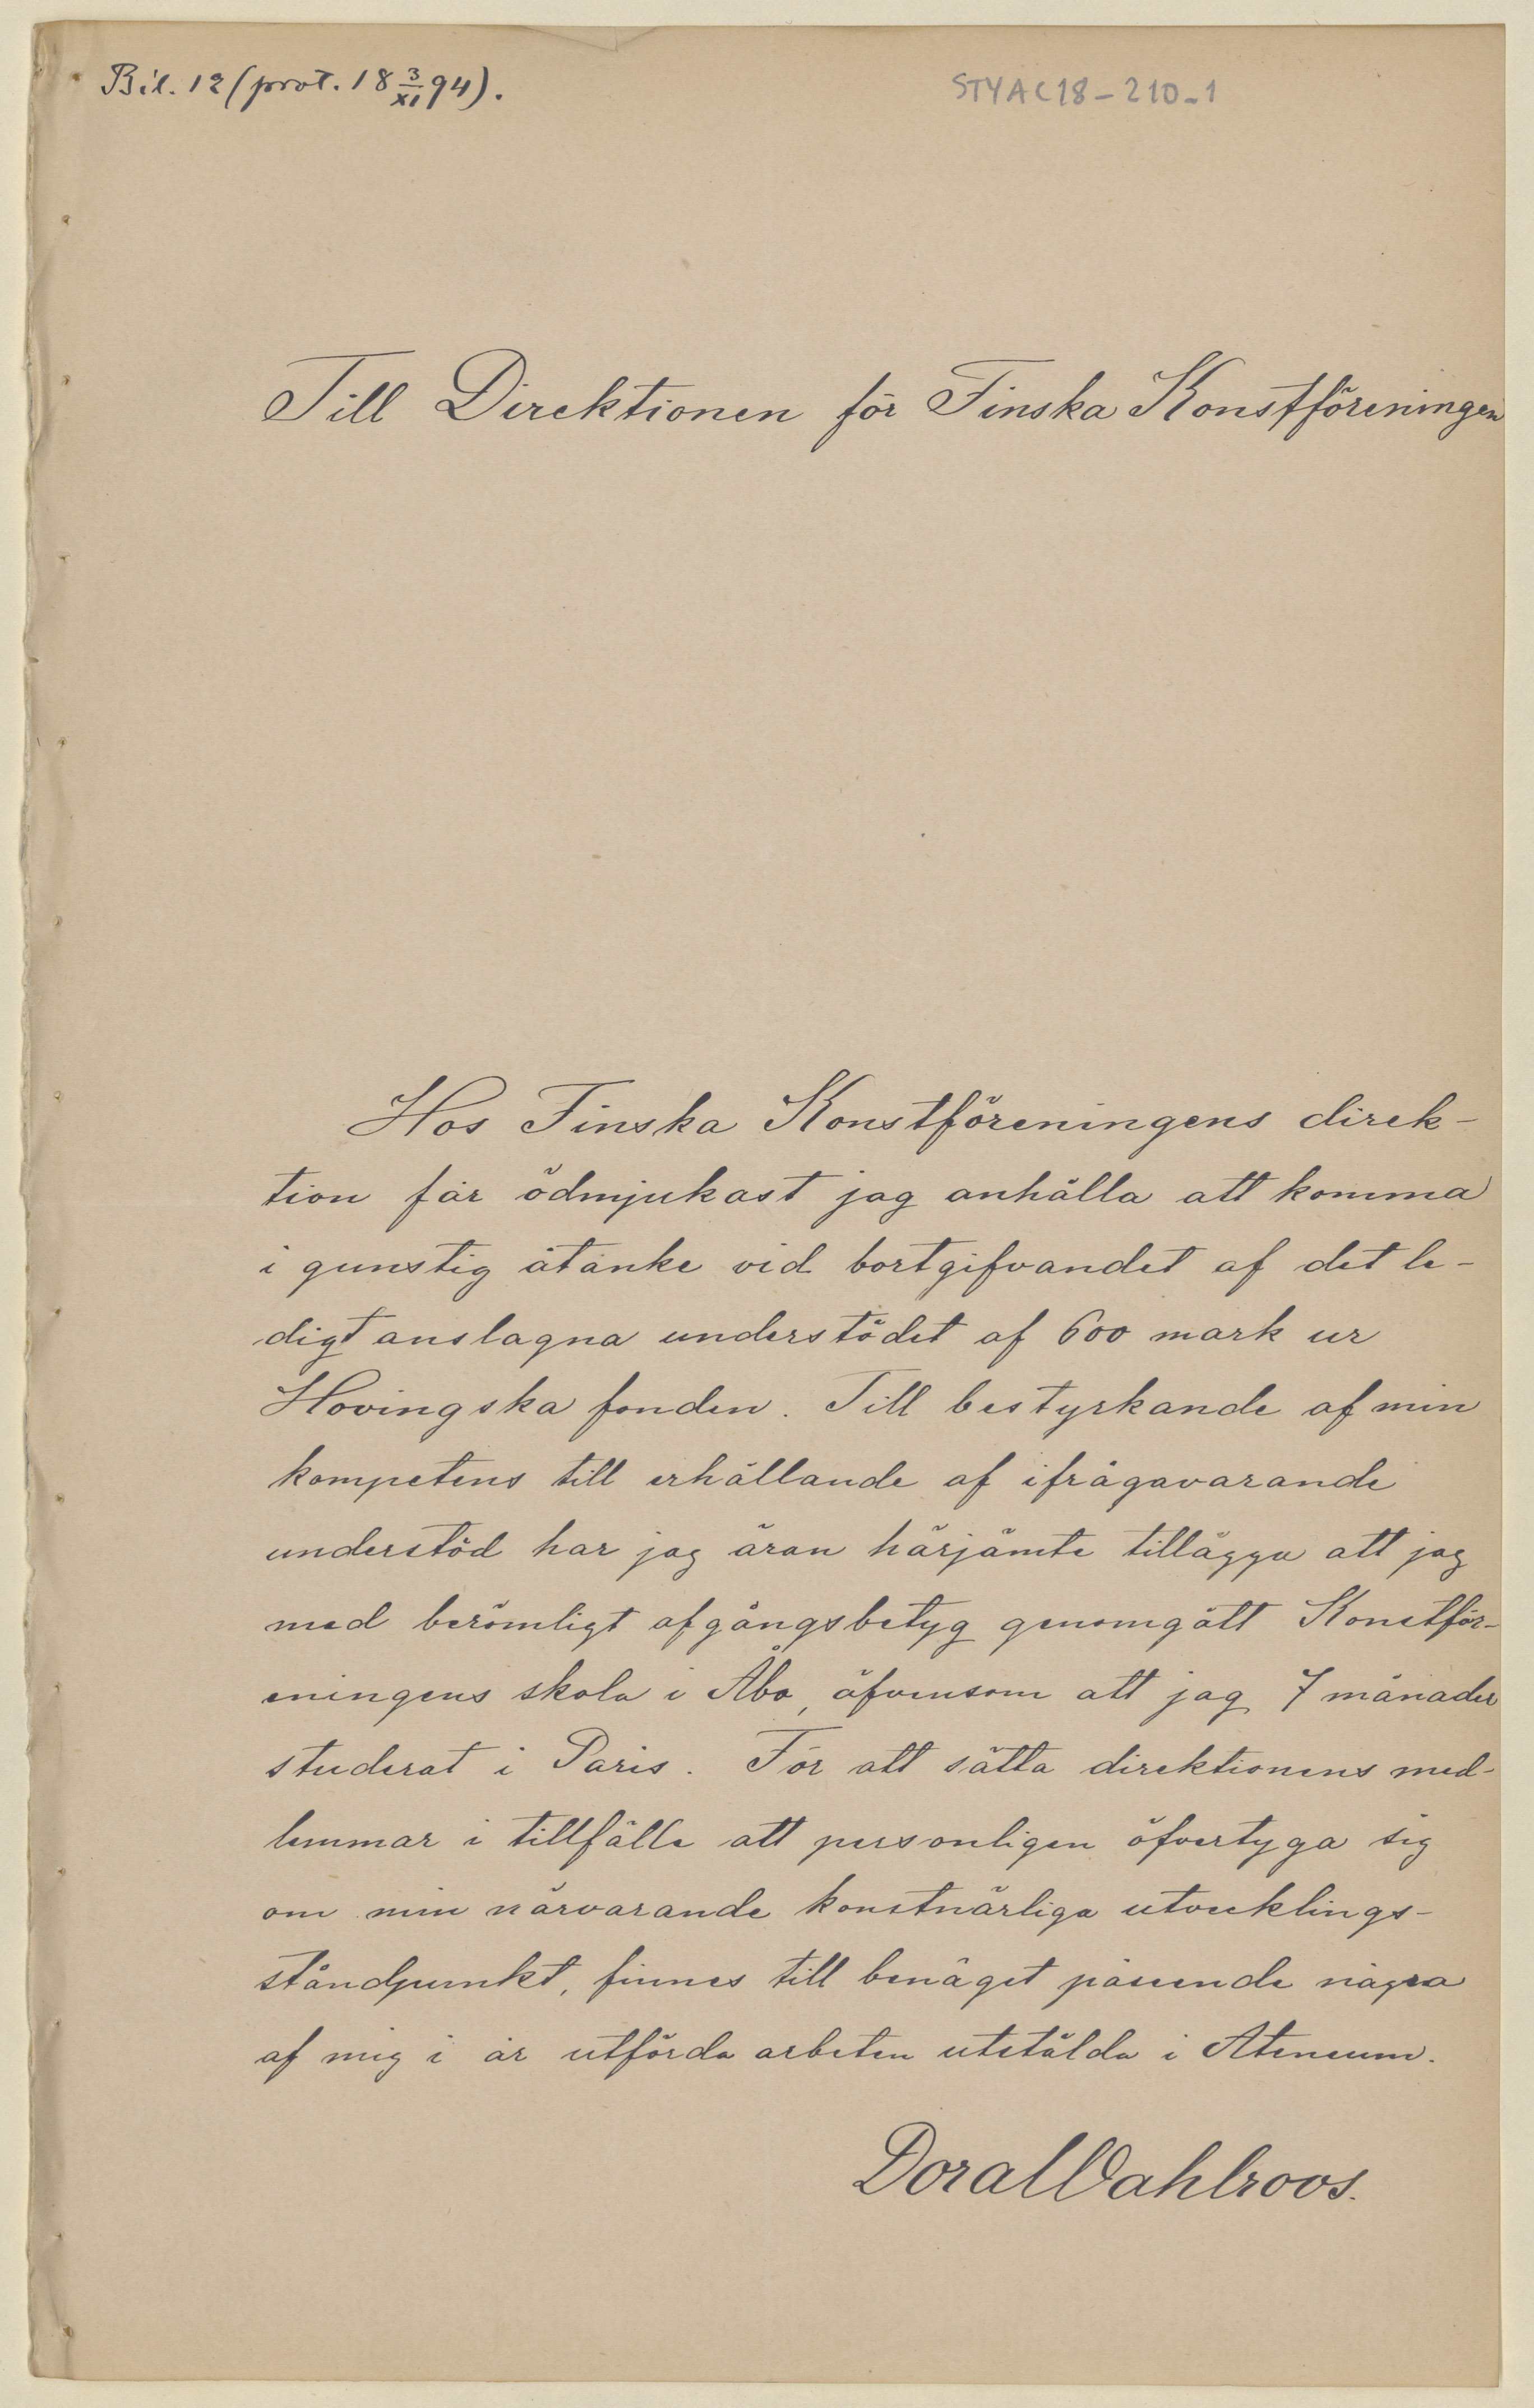 Bil. 12 (prot. 18 3/XI 94).
STYA C18-210-1
Till Direktionen för Finska Konstföreningen
Hos Finska Konstföreningens direk-
tion får ödmjukast jag anhålla att komma
i gunstig åtanke vid bortgifvandet af det le-
digt anslagna understödet af 600 mark ur
Hovingska fonden. Till bestyrkande af min
kompetens till erhållande af ifrågavarande
understöd har jag äran härjämte tillägga att jag
med berömligt afgångsbetyg genomgått Konstför-
eningens skola i Åbo, äfvensom att jag 7 månader
studerat i Paris. För att sätta direktionens med-
lemmar i tillfälle att personligen öfvertyga sig
om min närvarande konstnärliga utvecklings-
ståndpunkt, finnes till benäget påseende några
af mig i år utförda arbeten utstälda i Ateneum.
Dora Wahlroos.